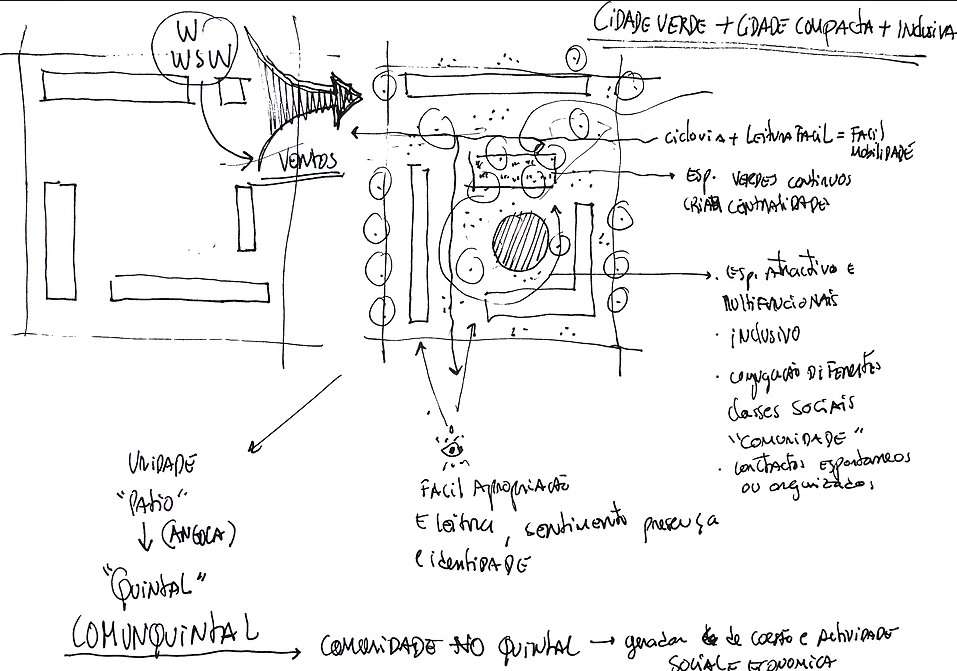 CIDADE VERDE + CIDADE COMPACTA + INCLUSIVA
W
WSW
VENTOS
CICLOVIA + LEITURA FACIL = FACIL
MOBILIDADE
ESP. VERDES CONTINUOS
CRIAR CENTRALIDADE
· ESP. Atractivo E
MULTIFUNCIONAIS
· INCLUSIVO
· CONJUGAÇÃO DIFERENTES
CLASSES SOCIAIS
"COMUNIDADE"
· CONTACTOS ESPONTANEOS
OU ORGANIZADOS
UNIDADE
"PATIO"
(ANGOLA)
"QUINTAL"
FACIL APROPRIAÇÃO
E LEITURA, SENTIMENTO PRESENÇA
E IDENTIDADE
COMUNQUINTAL
COMUNIDADE NO QUINTAL → gerador de COESÃO E ACTIVIDADE
SOCIAL E ECONOMICA